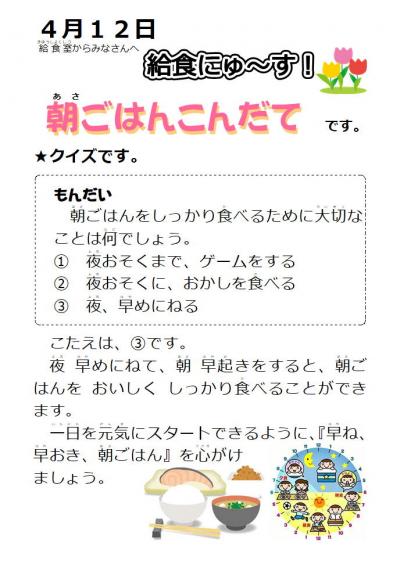 ４月１２日
給食室からみなさんへ
給食にゅ～す！
朝ごはんこんだて です。
★クイズです。
もんだい
朝ごはんをしっかり食べるために大切な
ことは何でしょう。
① 夜おそくまで、ゲームをする
② 夜おそくに、おかしを食べる
③ 夜、早めにねる
こたえは、③です。
夜 早めにねて、朝 早起きをすると、朝ご
はんを おいしく しっかり食べることができ
ます。
一日を元気にスタートできるように、『早ね、
早おき、朝ごはん』を心がけ
ましょう。